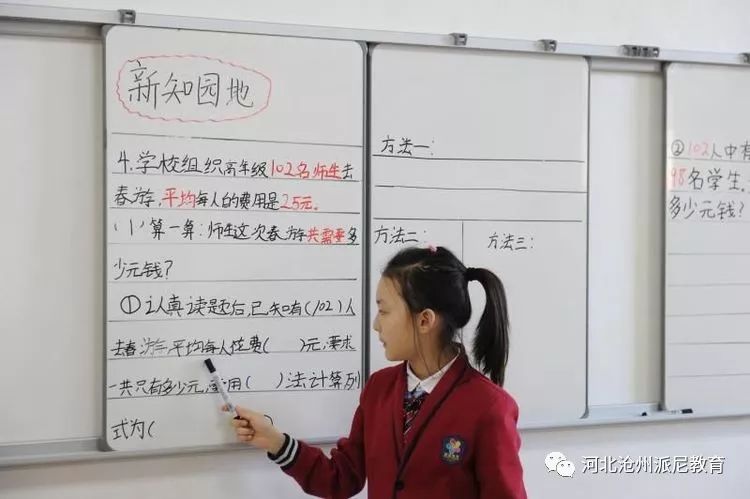 新知园地
4.学校组织高年级102名师生去
春游,平均每人的费用是25元。
(1)算一算:师生这次春游共需要多
少元钱?
①认真读题后,已知有(102)人
去春游,平均每人花费( )元,要求
一共只有多少元,应用( )法计算列
式为(
方法一:
方法二:
方法三:
②102人中有
98名学生,
多少元钱?
河北沧州派尼教育